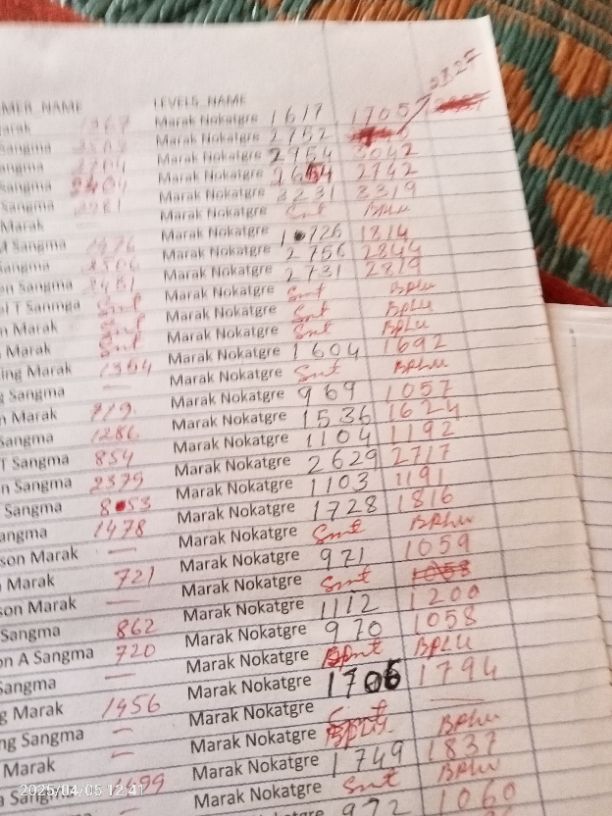 2827
MER_NAME LEVEL5_NAME
Marak 1367 Marak Nokatgre 1617 1705
Sangma Marak Nokatgre 2752
ngma Marak Nokatgre 2954 3042
Sangma Marak Nokatgre 2654 2742
Sangma 2981 Marak Nokatgre 3231 3319
Marak — Marak Nokatgre Smt BPLU
Sangma 1476 Marak Nokatgre 1726 1814
angma 2506 Marak Nokatgre 2756 2844
on Sangma 2481 Marak Nokatgre 2731 2819
al T Sanmga Smt Marak Nokatgre Smt BPLU
n Marak Smt Marak Nokatgre Smt BPLU
Marak Smt Marak Nokatgre Smt BPLU
ing Marak 1354 Marak Nokatgre 1604 1692
g Sangma — Marak Nokatgre Smt BPLU
n Marak 719 Marak Nokatgre 969 1057
Sangma 1286 Marak Nokatgre 1536 1624
T Sangma 854 Marak Nokatgre 1104 1192
n Sangma 2379 Marak Nokatgre 2629 2717
Sangma 853 Marak Nokatgre 1103 1191
angma 1478 Marak Nokatgre 1728 1816
son Marak — Marak Nokatgre Smt BPLU
Marak 721 Marak Nokatgre 971 1059
son Marak — Marak Nokatgre Smt 1058
Sangma 862 Marak Nokatgre 1112 1200
on A Sangma 720 Marak Nokatgre 970 1058
Sangma — Marak Nokatgre BPLU
g Marak 1456 Marak Nokatgre 1706 1794
ng Sangma — Marak Nokatgre —
Marak — Marak Nokatgre BPLU
a Sangma 1499 Marak Nokatgre 1749 1837
Marak Nokatgre Smt BPLU
katgre 972 1060
2025/04/05 12:41